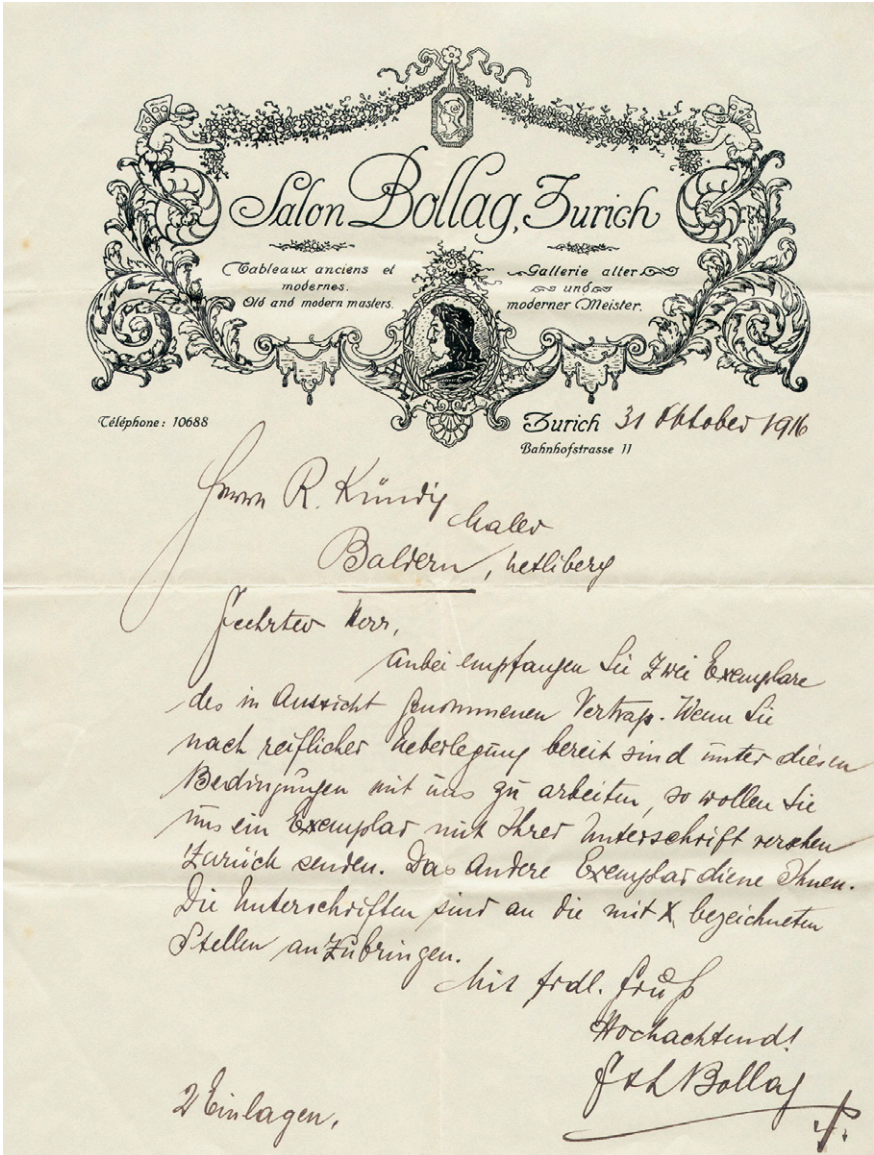 Salon Bollag, Zurich
Tableaux anciens et
modernes.
Old and modern masters.
Gallerie alter
und
moderner Meister.
Téléphone: 10688
Zurich 31 Oktober 1916
Bahnhofstrasse 11
Herrn R. Kündig
Maler
Baldern, Uetliberg
Geehrter Herr,
Anbei empfangen Sie zwei Exemplare
des in Aussicht genommenen Vertrags. Wenn Sie
nach reiflicher Ueberlegung bereit sind unter diesen
Bedingungen mit uns zu arbeiten, so wollen Sie
uns ein Exemplar mit Ihrer Unterschrift versehen
zurück senden. Das Andere Exemplar diene Ihnen.
Die Unterschriften sind an die mit X bezeichneten
Stellen anzubringen.
Mit frdl. Gruß
Hochachtend!
G & L Bollag
2 Einlagen.